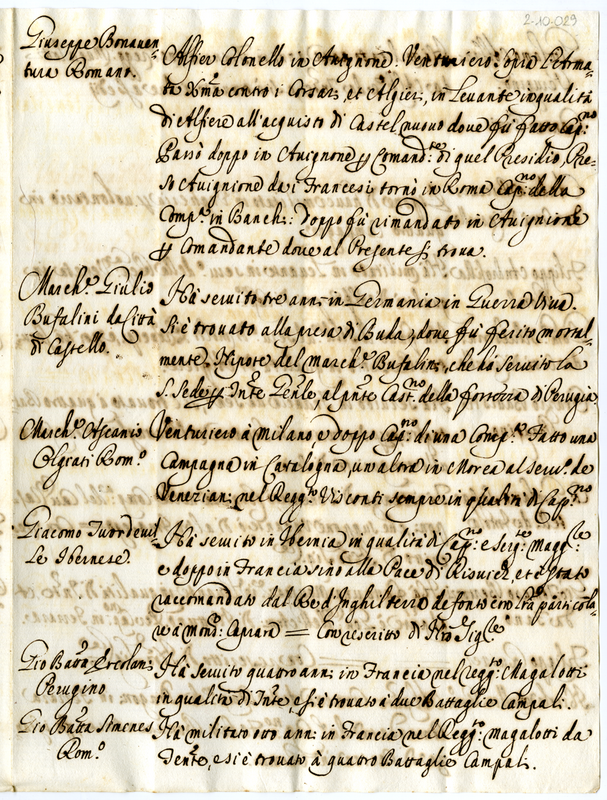 2-10-029
Giuseppe Bonaven-
tura Romano.
Alfier Colonello in Avignone. Venturiero sopra l'Arma-
ta contro i Corsari, et Algier, in Levante in qualità
di Alfiere all'acquisto di Castel nuovo dove fù fatto Cap:no
Passò doppo in Avignone Comand:te di quel Presidio, Pre-
so Avignione da i Francesi tornò in Roma Cap:no della
Comp.a in Banchi: doppo fù rimandato in Avignione
Comandante dove al Presente si trova.
March.e Giulio
Bufalini da Città
di Castello.
Hà servito tre anni in Germania in Guerra viva.
Si è trovato alla presa di Buda, dove fu ferito mortal-
mente, Nipote del March.e Bufalini, che hà servito la
S. Sede Gen̄le, al pn̄te Cast.no della fortezza di Perugia.
March.e Ascanio
Olgiati Rom.o
Venturiero à Milano e doppo Cap:no di una Comp.a Fatto una
Campagna in Catalogna, un'altra in Morea al Serv.o de
Veneziani nel Regg.to Visconti sempre in qualità di Cap.no
Giacomo
Le Ibernese.
Hà servito in Ibernia in qualità di Cap:no e Serg:te Magg:re
e doppo in Francia sino alla Pace di Risvich, et è stato
racomandato dal Re d'Inghilterra defonto con particola-
re à Mons: = Con rescritto di
Gio Batta Ercolani
Perugino
Hà servito quattro anni in Francia nel Regg:to Magalotti
in qualità di e si è trovato à due Battaglie Campali.
Gio Batta Simones
Rom.o
Hà militato otto anni in Francia nel Regg:to Magalotti da
Tente, e si è trovato à quattro Battaglie Campali.